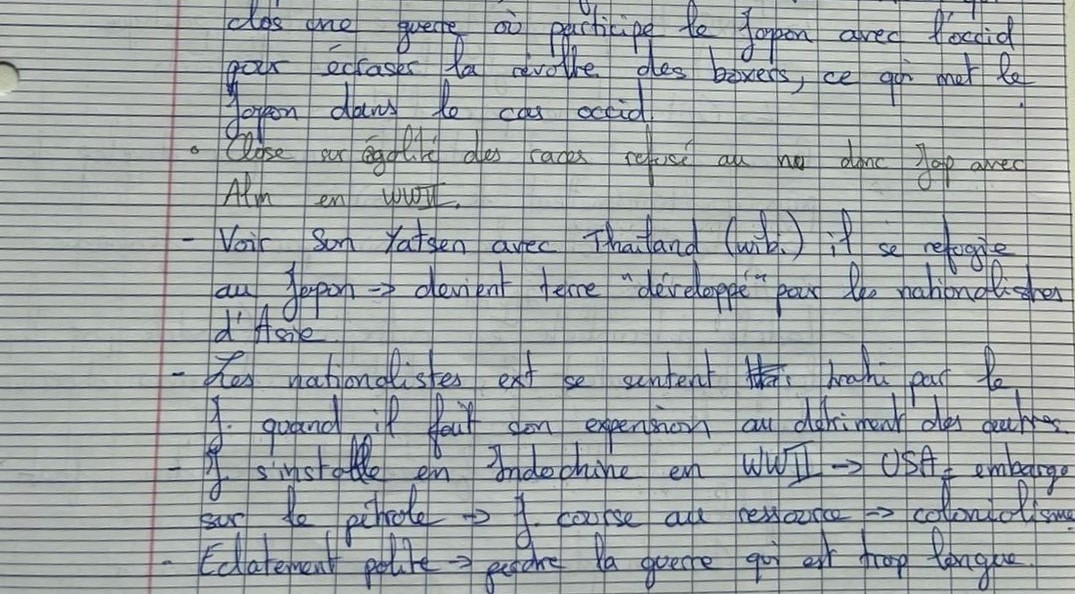 clos une guerre où participe le Japon avec l'occid
pour écraser la révolte des boxers, ce qui met le
Japon dans le cas occid.
• Close sur égalité des races refusé au no donc Jap avec
Alm en WWII.
- Voir Son Yatsen avec Thaïland (wib.) il se refugie
au Japon → devient terre "développé" pour les nationalistes
d'Asie.
- Les nationalistes ext se sentent trahi par le
J. quand il fait son expension au détriment des autres.
- J s'installe en Indochine en WWII → USA = embargo
sur le pétrole → J. course au ressource → colonialisme
- Eclatement polite → perdre la guerre qui est trop longue.